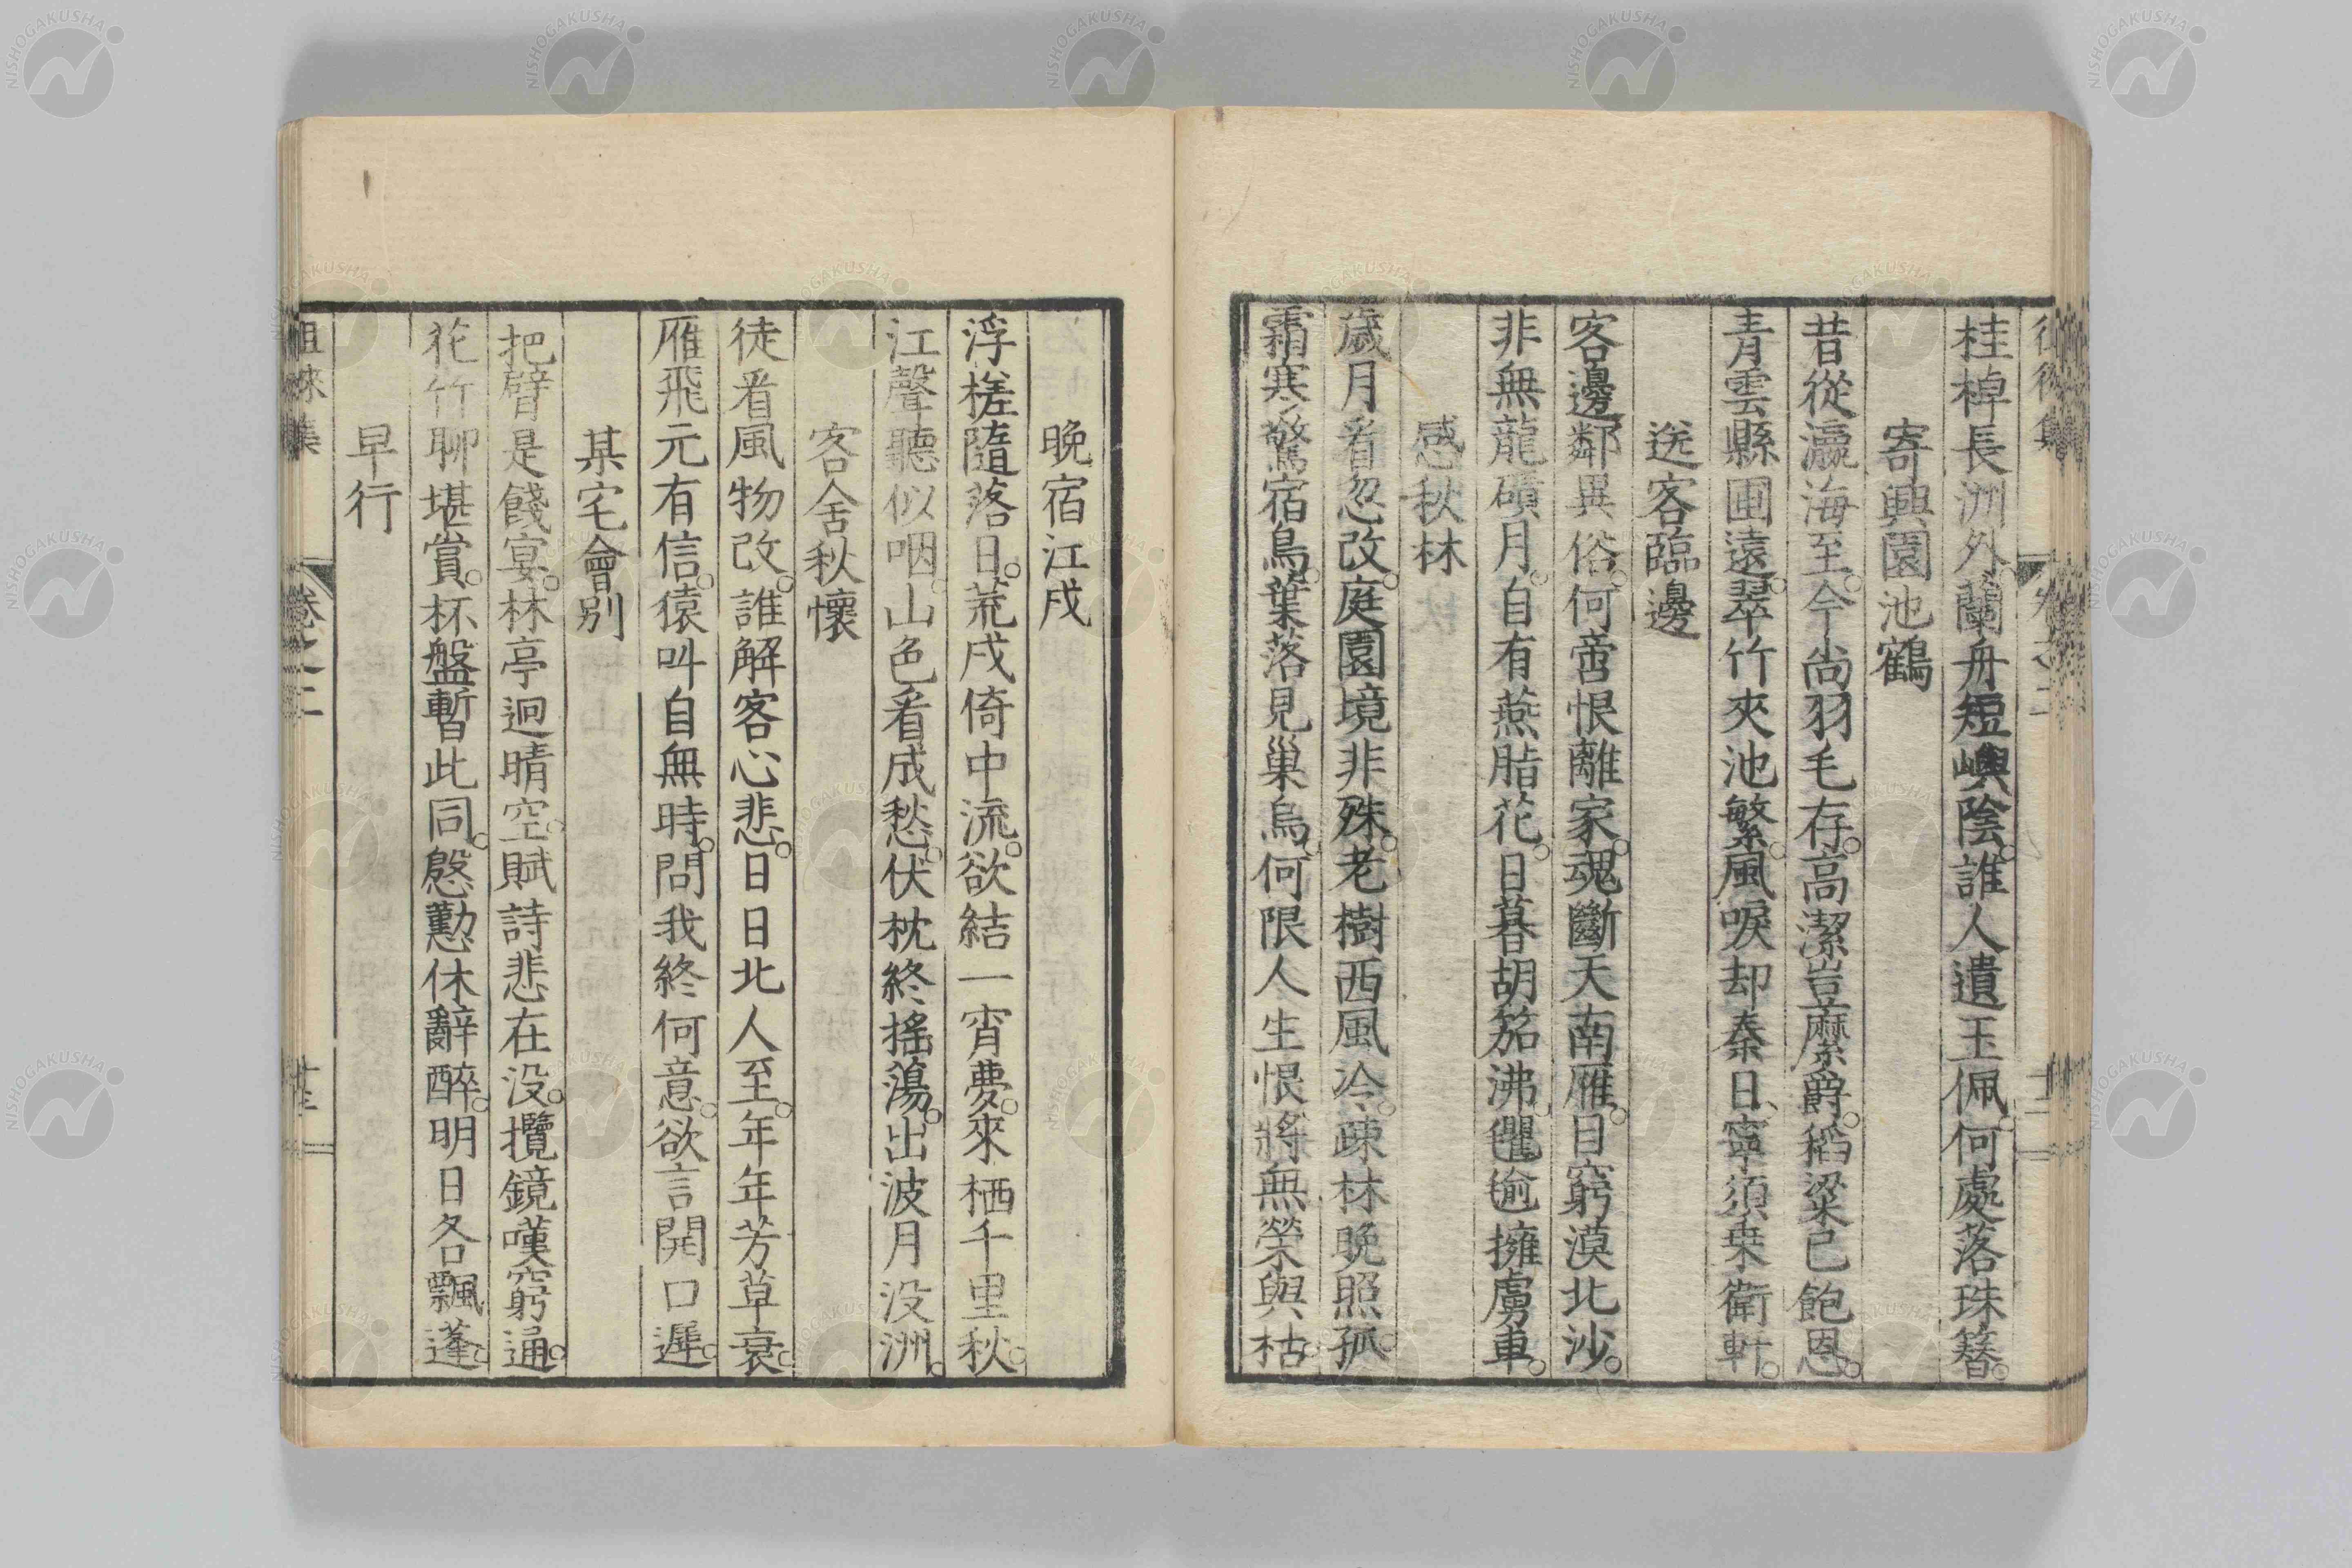 桂棹長洲外蘭舟短嶼陰。誰人遺玉佩。何處落珠簪。
寄興園池鶴
昔從瀛海至。今尚羽毛存。高潔豈縻爵。稻粱已飽恩。
青雲縣圃遠。翠竹夾池繁。風唳却秦日。寧須乗衛軒。
送客臨邊
客邊鄰異俗。何啻恨離家。魂斷天南雁。日窮漠北沙。
非無龍磧月。自有燕脂花。日暮胡笳沸。氍毹擁虜車。
感秋林
歲月看忽改。庭園境非殊。老樹西風冷。疎林晚照孤。
霜寒驚宿鳥。葉落見巢烏。何限人生恨。將無榮與枯。
晚宿江戍
浮槎隨落日。荒戍倚中流。欲結一宵夢。來栖千里秋。
江聲聽似咽。山色看成愁。伏枕終搖蕩。出波月没洲。
客舍秋懷
徒看風物改。誰解客心悲。日日北人至。年年芳草衰。
雁飛元有信。猿叫自無時。問我終何意。欲言開口遲。
某宅會別
把臂是餞宴。林亭迥晴空。賦詩悲在没。攬鏡嘆窮通。
花竹聊堪賞。杯盤暫此同。慇懃休辭醉。明日各飄蓬。
早行
徂徠集 卷之二 十三